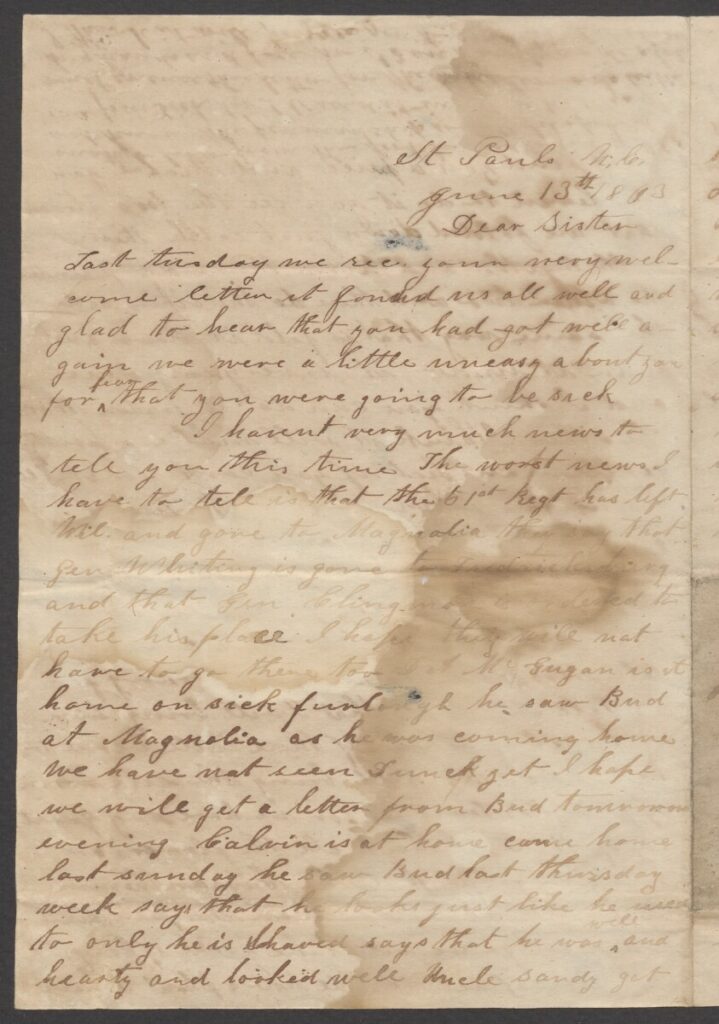 St Pauls N.C.
June 13th 1863
Dear Sister
Last tusday we rec. your very wel-
come letter it found us all well and
glad to hear that you had got well a
gain we were a little uneasy about you
for fear that you were going to be sick
I havent very much news to
tell you this time The worst news I
have to tell is that the 61st Regt has left
Wil. and gone to Magnolia they say that
Gen Whiting is gone to
and that Gen Clingman is ordered to
take his place I hope they will not
have to go there too Mc Gugan is at
home on sick furlough he saw Bud
at Magnolia as he was coming home
We have not seen Dunck yet I hope
we will get a letter from Bud tomrrow
evening Calvin is at home came home
last sunday he saw Bud last thursday
week says that he looks just like he used
to only he is shaved says that he was well and
hearty and looked well Uncle Sandy got